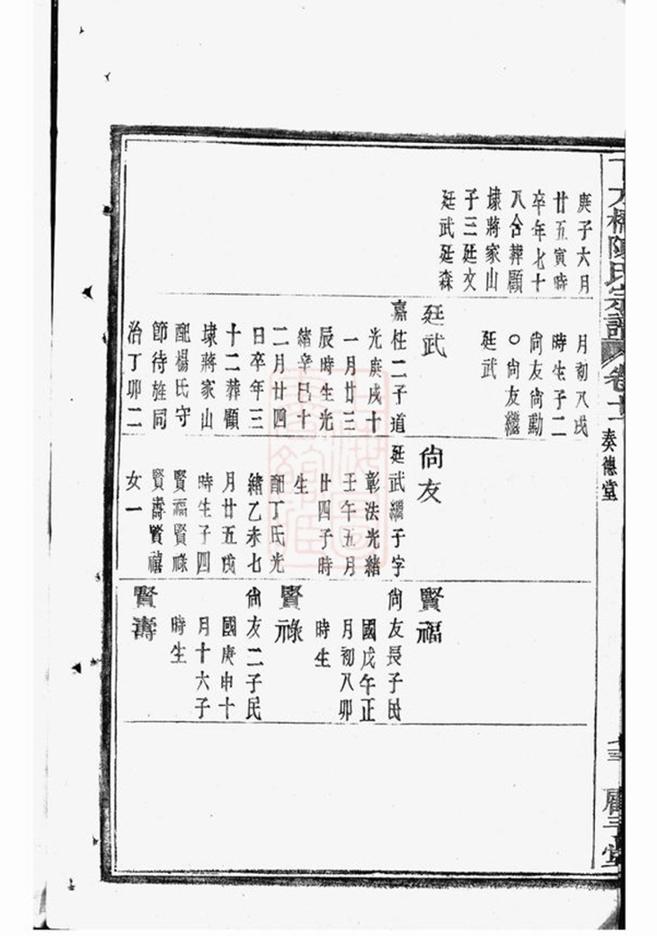 陳氏宗譜
卷十一
奏德堂
庚子六月
廿五寅時
卒年七十
八合葬顧
埭蔣家山
子三廷文
廷武廷森
月初八戌
時生子二
尙友尙勳
○尙友繼
廷武
廷武
嘉柱二子道
光庚戌十
一月廿三
辰時生光
緒辛巳十
二月廿四
日卒年三
十二葬顧
埭蔣家山
配楊氏守
節待旌同
治丁卯二
尙友
廷武繼子字
彰法光緒
壬午五月
廿四子時
生
配丁氏光
緒乙未七
月廿五戌
時生子四
賢福賢祿
賢壽賢禧
女一
賢福
尙友長子民
國戊午正
月初八卯
時生
賢祿
尙友二子民
國庚申十
月十六子
時生
賢壽